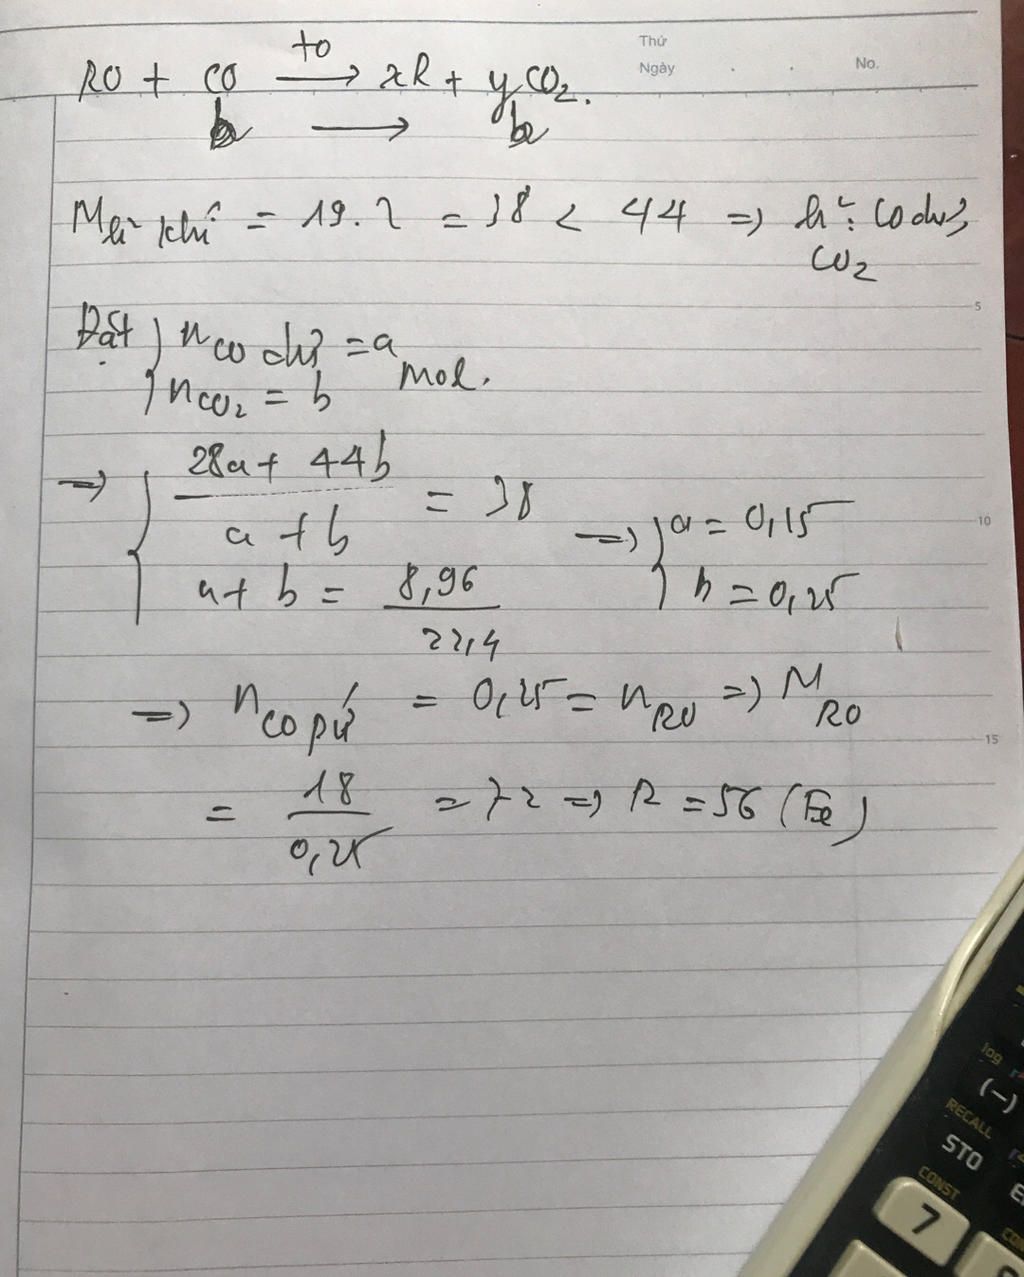 Thứ
Ngày . . No.
RO + CO t0 → xR + yCO2.
b → b
M khí = 19.2 = 38 < 44 => h²: CO dư, CO2
Đặt { n CO dư = a
n CO2 = b mol.
=> { 28a + 44b / a + b = 38
a + b = 8,96 / 22,4
=> { a = 0,15
b = 0,25
=> n CO pứ = 0,25 = n RO => M RO
= 18 / 0,25 = 72 => R = 56 (Fe)
5
10
15
log
(-)
RECALL
STO
CONST
7